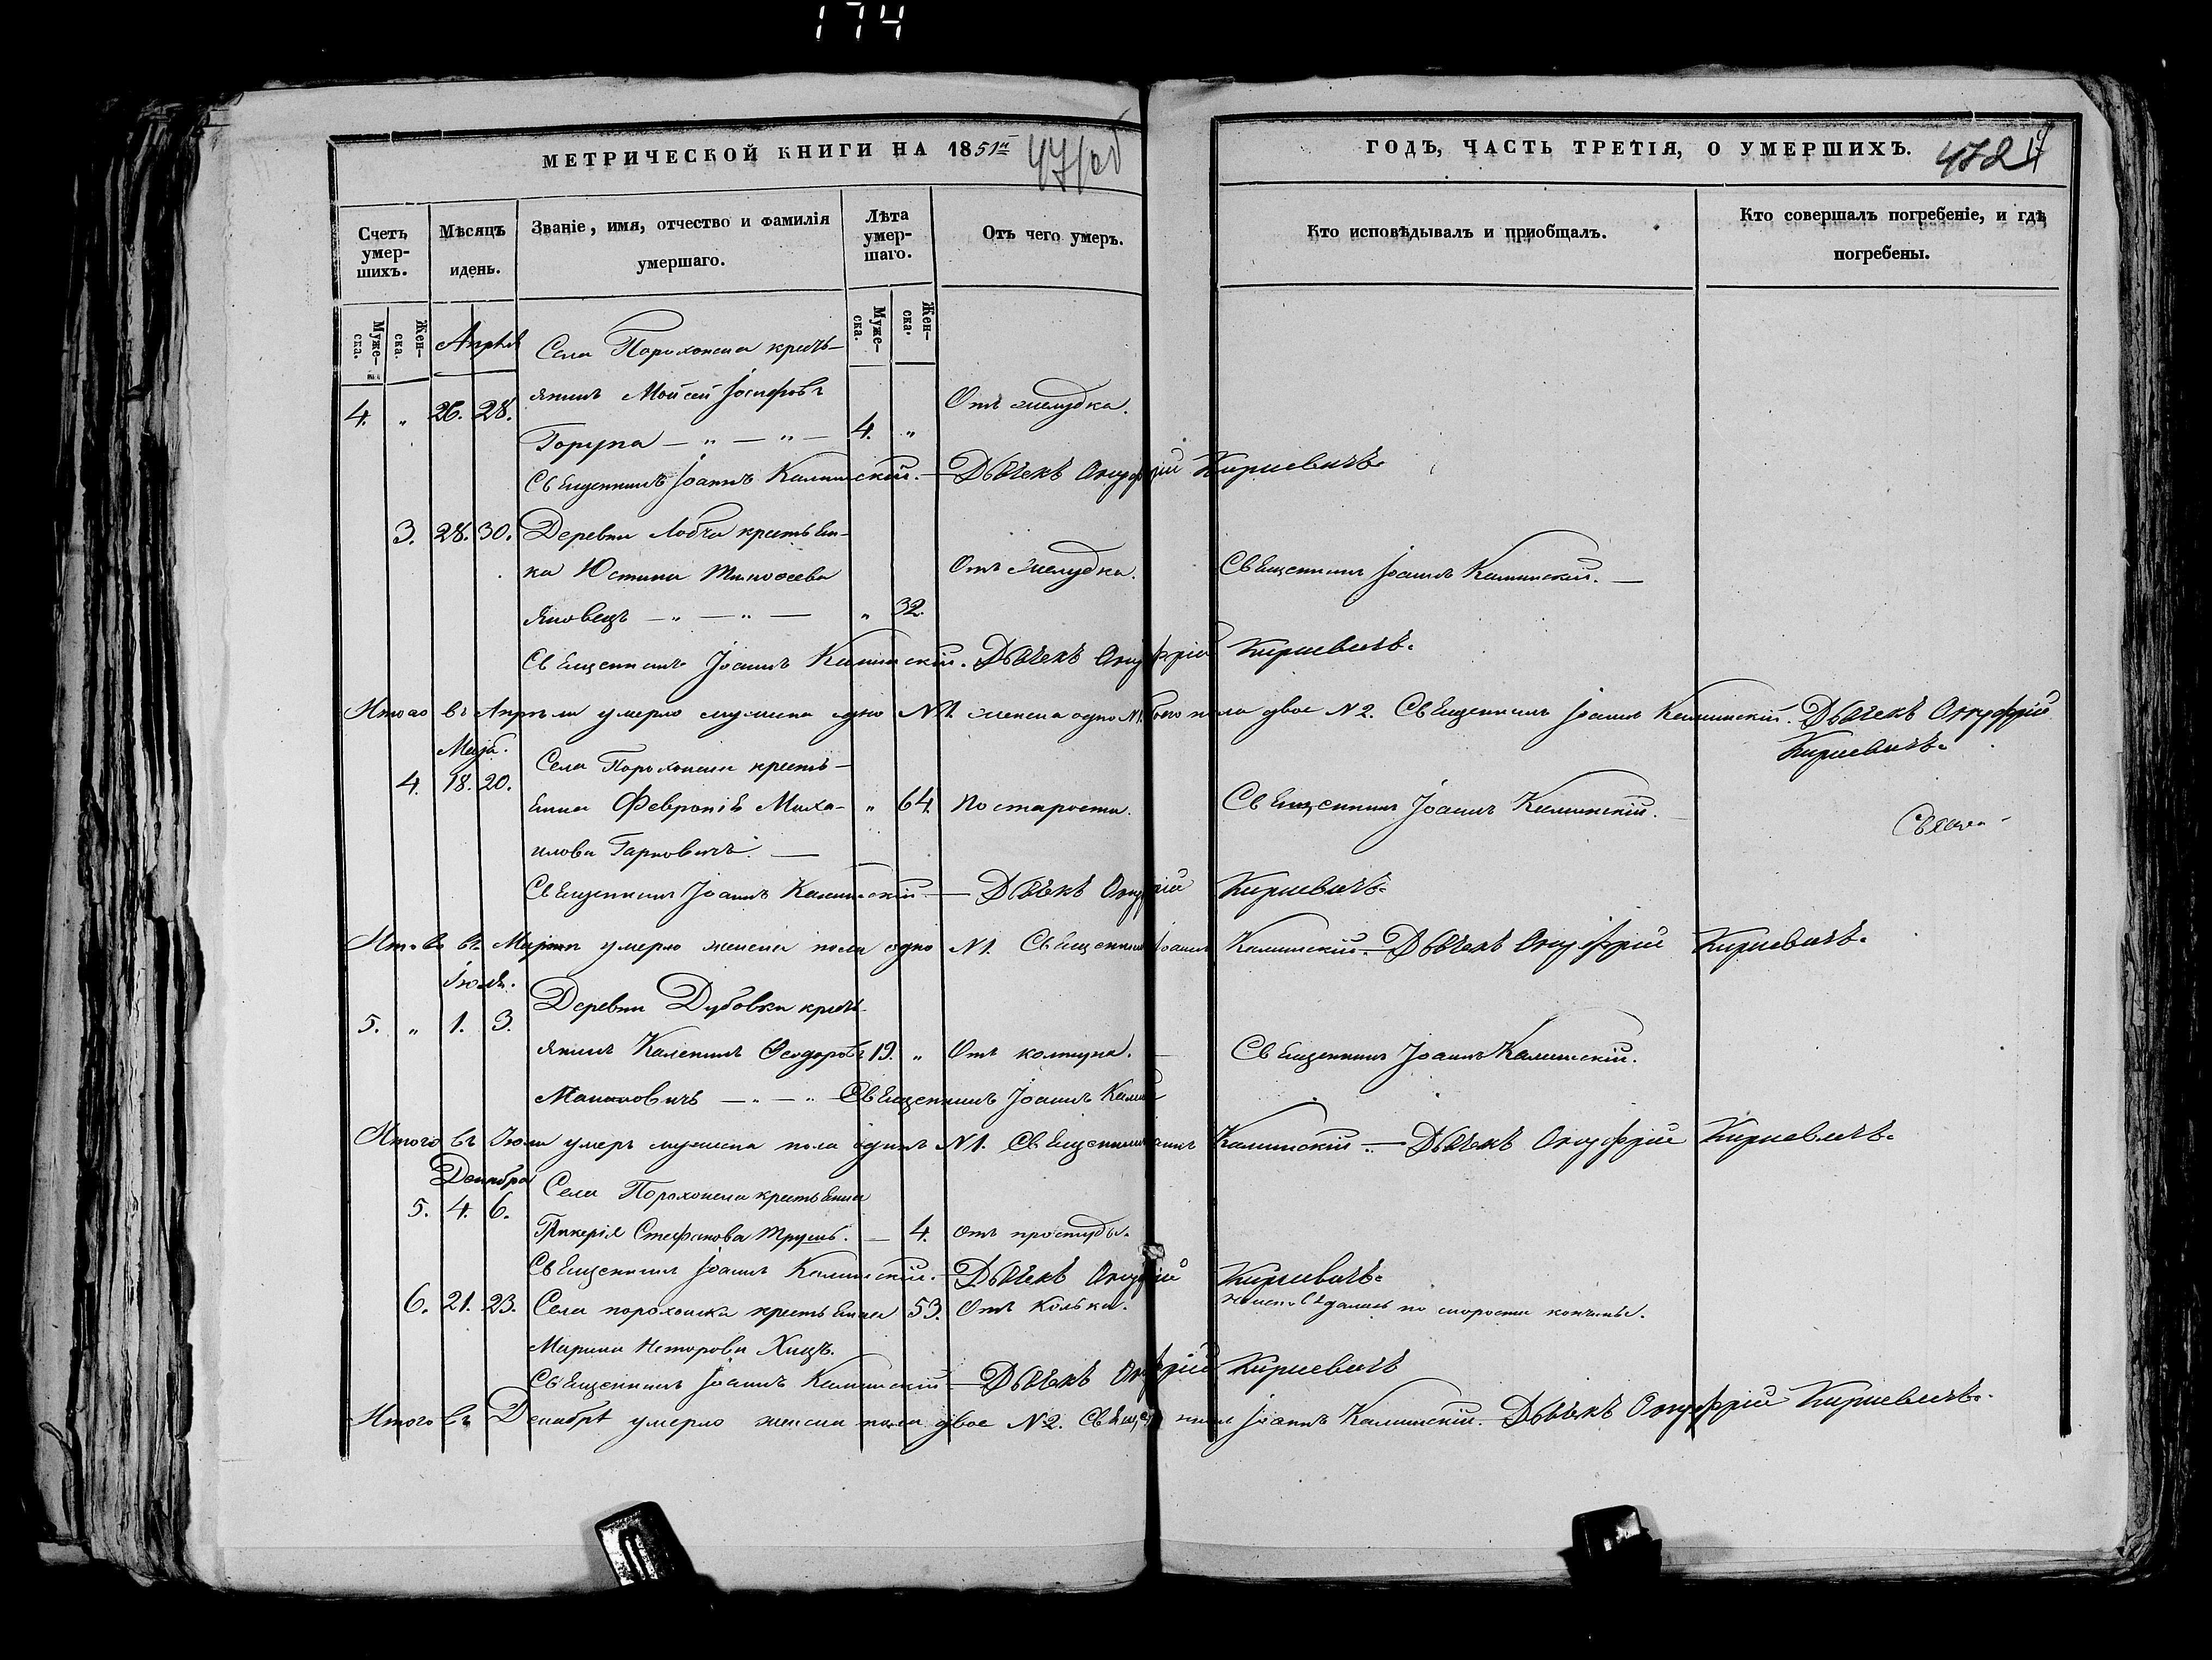 174
МЕТРИЧЕСКОЙ КНИГИ НА 1851й
471об
ГОДЪ, ЧАСТЬ ТРЕТІЯ, О УМЕРШИХЪ.
472
Счетъ умер-шихъ.
Мѣсяцъ идень.
Званіе, имя, отчество и фамилія умершаго.
Лѣта умер-шаго.
Отъ чего умеръ.
Кто исповѣдывалъ и приобщалъ.
Кто совершалъ погребеніе, и гдѣ погребены.
Муже-ска.
Жен-ска.
Муже-ска.
Жен-ска.
Апрѣль
Села Порохонска кресть-
4. „ 26. 28. янинъ Мойсей Іосифовъ Отъ желудка.
Горупа — „ — „ — 4. „
Священникъ Іоаннъ Калинскій. — Дьячекъ Онуфрій Киркевичъ.
3. 28. 30. Деревни Лобча крестьян-
ка Юстина Тимофеева Отъ желудка. Священникъ Іоаннъ Калинскій. —
Яновецъ — „ — „ — „ 32.
Священникъ Іоаннъ Калинскій. Дьячекъ Онуфрій Киркевичъ.
Итого въ Апрѣли умерло мужеска одно N1. женска одно N1. обоего пола двое N2. Священникъ Іоаннъ Калинскій. Дьячекъ Онуфрій
Киркевичъ.
Маја.
Села Порохонска кресть-
4. 18. 20. янка Февронія Миха- „ 64. По старости. Священникъ Іоаннъ Калинскій.
илова Гарковичъ. —
Священникъ Іоаннъ Калинскій. — Дьячекъ Онуфрій Киркевичъ.
Итого въ умерло женска пола одно N1. Священникъ Іоаннъ Калинскій. — Дьячекъ Онуфрій Киркевичъ.
Іюля.
Деревни Дубовки кресть-
5. „ 1. 3.
янинъ Каленикъ Феодоровъ 19. „ Отъ колтуна. — Священникъ Іоаннъ Калинскій.
— „ — „ Священникъ Іоаннъ
Итого въ Іюли умеръ мужеска пола одинъ N1. Священникъ Іоаннъ Калинскій. — Дьячекъ Онуфрій Киркевичъ.
Декабря
Села Порохонска крестьянка
5. 4. 6.
Гликерія Стефанова Трушъ. — 4. Отъ простуды.
Священникъ Іоаннъ Калинскій. — Дьячекъ Онуфрій Киркевичъ.
6. 21. 23. Села порохонска крестьянка 53. Отъ колька. по скорости кончины.
Марина Несторова Хицъ.
Священникъ Іоаннъ Калинскій — Дьячекъ Онуфрій Киркевичъ
Итого въ Декабрѣ умерло женска пола двое N2. Священникъ Іоаннъ Калинскій. Дьячекъ Онуфрій Киркевичъ.